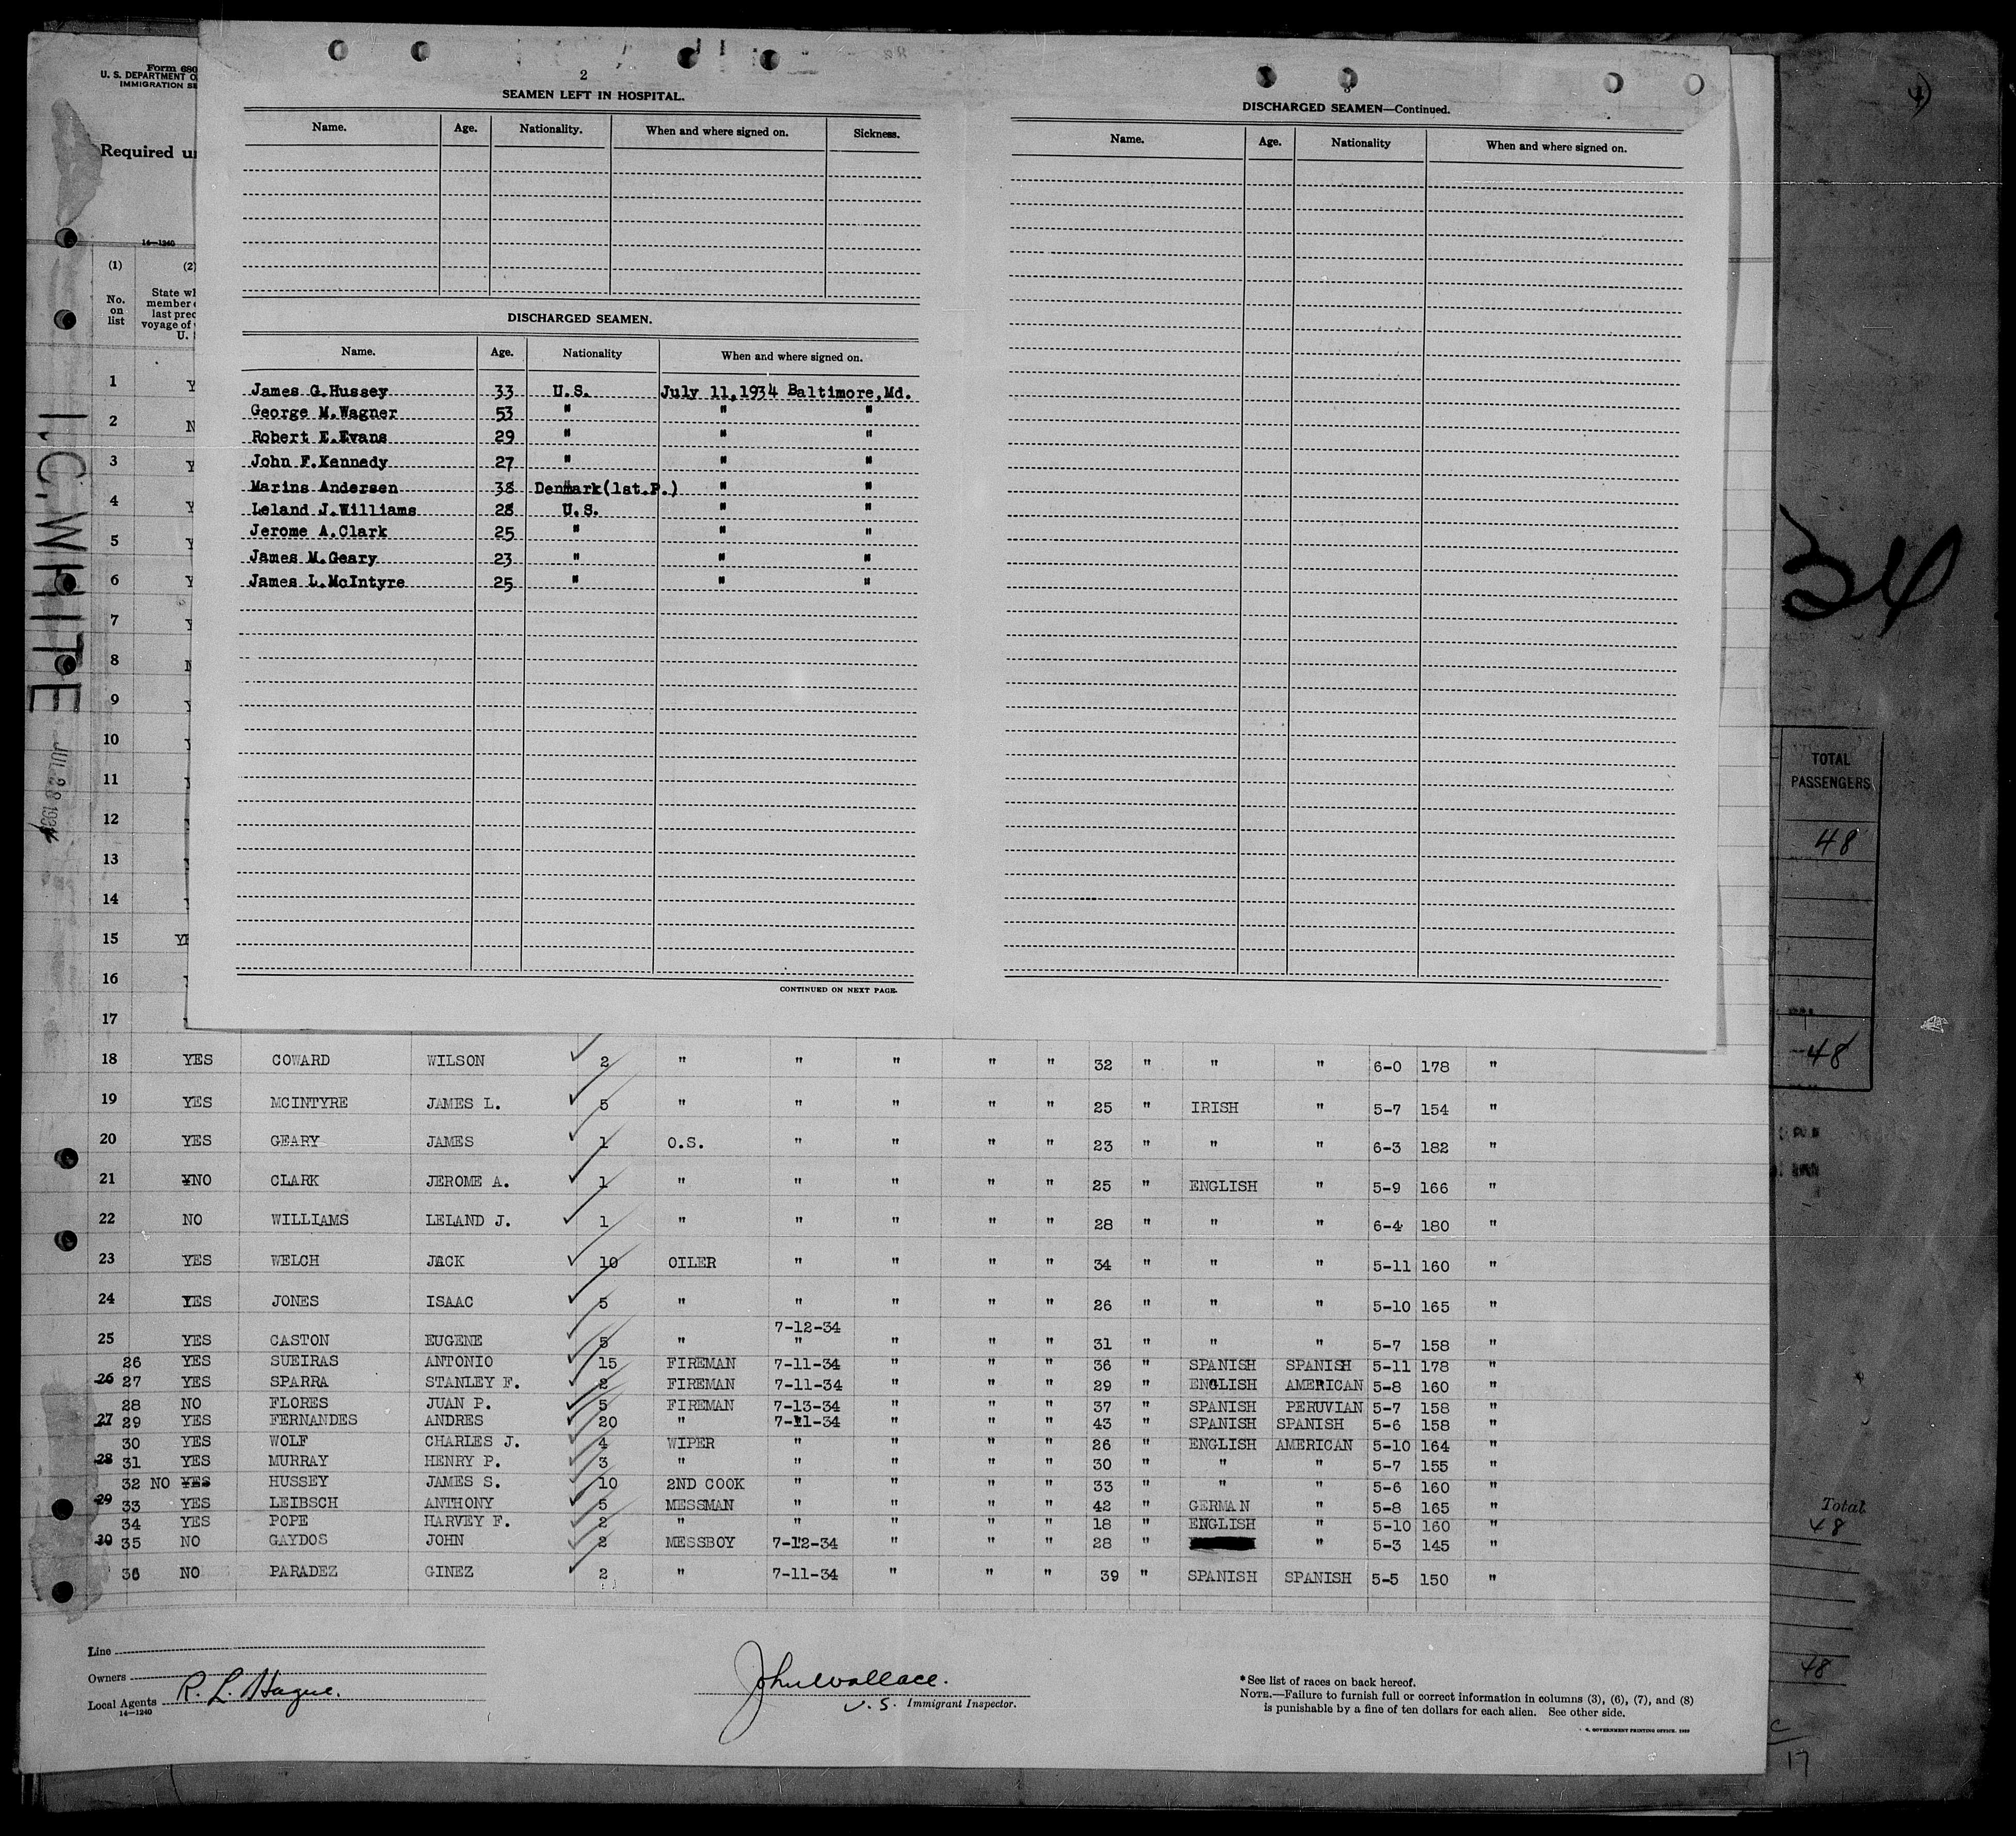 Form 680
U. S. DEPARTMENT O
IMMIGRATION SE
Required un
14—1240
(1) (2)
No. on list
State wh
member o
last prec
voyage of
U. S
I.C. WHITE
JUL 28 1934
2
SEAMEN LEFT IN HOSPITAL.
Name. Age. Nationality. When and where signed on. Sickness.
DISCHARGED SEAMEN.
Name. Age. Nationality When and where signed on.
James G.Hussey 33 U.S. July 11,1934 Baltimore,Md.
George M.Wagner 53 " " "
Robert E.Evans 29 " " "
John F.Kennedy 27 " " "
Marins Andersen 38 Denmark(1st.P.) " "
Leland J.Williams 28 U.S. " "
Jerome A.Clark 25 " " "
James M.Geary 23 " " "
James L.McIntyre 25 " " "
CONTINUED ON NEXT PAGE.
3
DISCHARGED SEAMEN—Continued.
Name. Age. Nationality When and where signed on.
1 Y
2 N
3 Y
4 Y
5 Y
6 Y
7 Y
8 N
9 Y
10 Y
11
12
13
14
15 YE
16
17
18 YES COWARD WILSON 2 " " " " " 32 " " " 6-0 178 "
19 YES MCINTYRE JAMES L. 5 " " " " " 25 " IRISH " 5-7 154 "
20 YES GEARY JAMES 1 O.S. " " " " 23 " " " 6-3 182 "
21 YNO CLARK JEROME A. 1 " " " " " 25 " ENGLISH " 5-9 166 "
22 NO WILLIAMS LELAND J. 1 " " " " " 28 " " " 6-4 180 "
23 YES WELCH JACK 10 OILER " " " " 34 " " " 5-11 160 "
24 YES JONES ISAAC 5 " " " " " 26 " " " 5-10 165 "
7-12-34
25 YES CASTON EUGENE 5 " " " " " 31 " " " 5-7 158 "
26 YES SUEIRAS ANTONIO 15 FIREMAN 7-11-34 " " " 36 " SPANISH SPANISH 5-11 178 "
26 27 YES SPARRA STANLEY F. 2 FIREMAN 7-11-34 " " " 29 " ENGLISH AMERICAN 5-8 160 "
28 NO FLORES JUAN P. 5 FIREMAN 7-13-34 " " " 37 " SPANISH PERUVIAN 5-7 158 "
27 29 YES FERNANDES ANDRES 20 " 7-11-34 " " " 43 " SPANISH SPANISH 5-6 158 "
30 YES WOLF CHARLES J. 4 WIPER " " " " 26 " ENGLISH AMERICAN 5-10 164 "
28 31 YES MURRAY HENRY P. 3 " " " " " 30 " " " 5-7 155 "
32 NO YES HUSSEY JAMES S. 10 2ND COOK " " " " 33 " " " 5-6 160 "
29 33 YES LEIBSCH ANTHONY 5 MESSMAN " " " " 42 " GERMAN " 5-8 165 "
34 YES POPE HARVEY F. 2 " " " " " 18 " ENGLISH " 5-10 160 "
30 35 NO GAYDOS JOHN 2 MESSBOY 7-12-34 " " " 28 " " 5-3 145 "
36 NO PARADEZ GINEZ 2 " 7-11-34 " " " 39 " SPANISH SPANISH 5-5 150 "
Line
Owners
Local Agents R. L. Hague.
14—1240
John Wallace.
U. S. Immigrant Inspector.
*See list of races on back hereof.
NOTE.—Failure to furnish full or correct information in columns (3), (6), (7), and (8)
is punishable by a fine of ten dollars for each alien. See other side.
34
TOTAL
PASSENGERS
48
48
Total
48
48
17